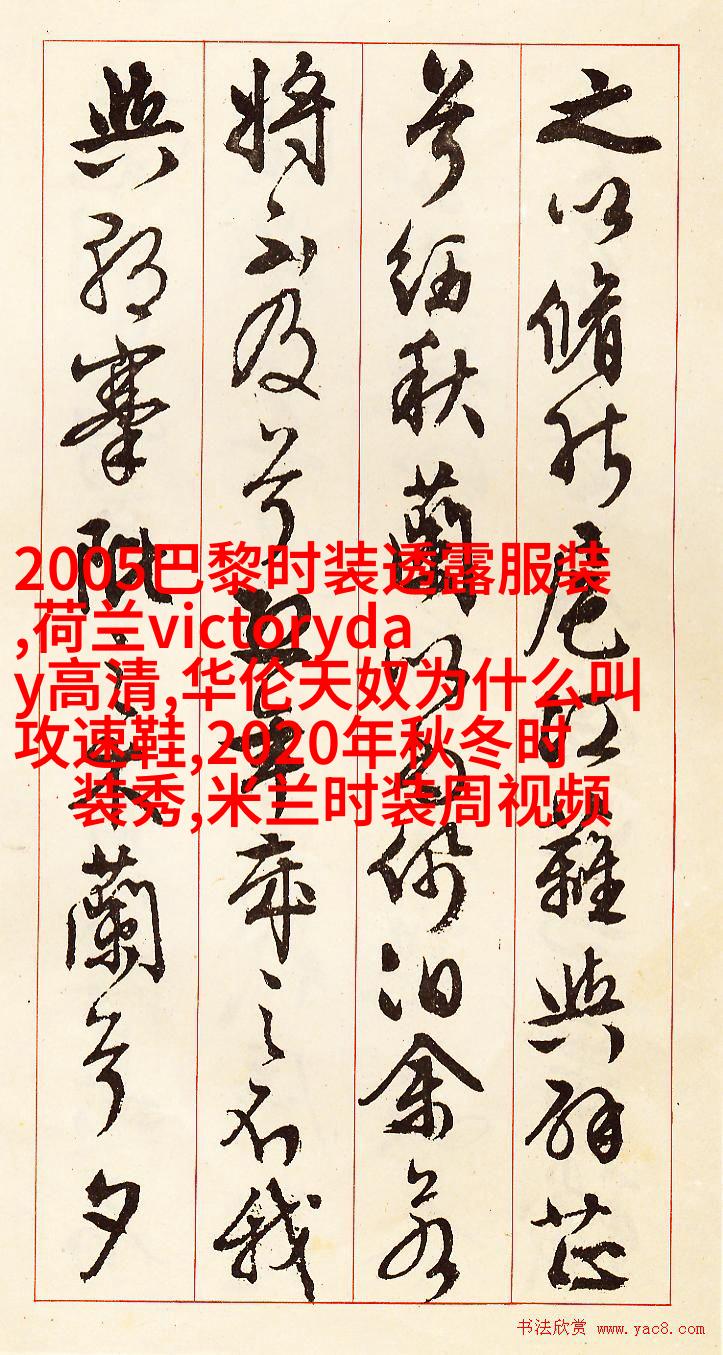 之以脩能扈江蘺與辟芷
兮紉秋蘭以為佩汩余若
將不及兮恐年歲之不我
與朝搴阰之木蘭兮夕
2005巴黎时装透露服装
,荷兰victoryda
y高清,华伦天奴为什么叫
攻速鞋,2020年秋冬时
装秀,米兰时装周视频
书法欣赏 www.yac8.com